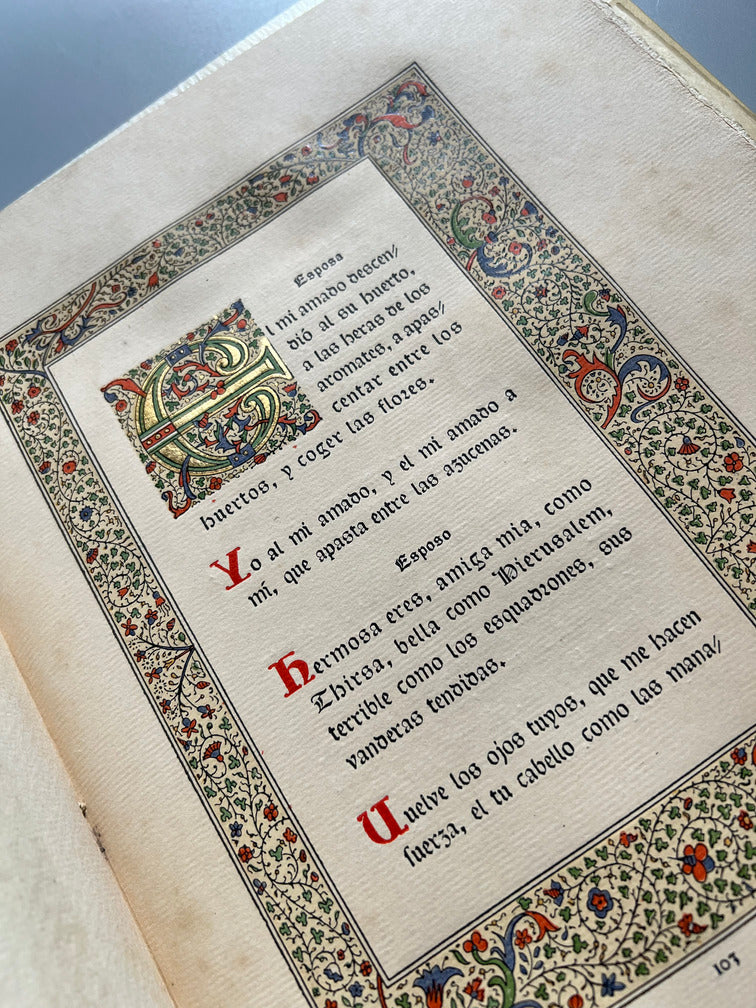 Esposa
El mi amado descen/
dió al su huerto,
a las heras de los
aromates, a apas/
centar entre los
huertos, y coger las flores.
Yo al mi amado, y el mi amado a
mí, que apasta entre las azucenas.
Esposo
Hermosa eres, amiga mia, como
Thirsa, bella como Hierusalem,
terrible como los esquadrones, sus
vanderas tendidas.
Vuelve los ojos tuyos, que me hacen
fuerza, el tu cabello como las mana/
103